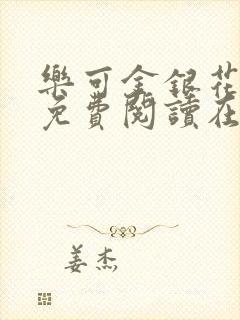 樂可金銀花
免費閱讀在
姜杰